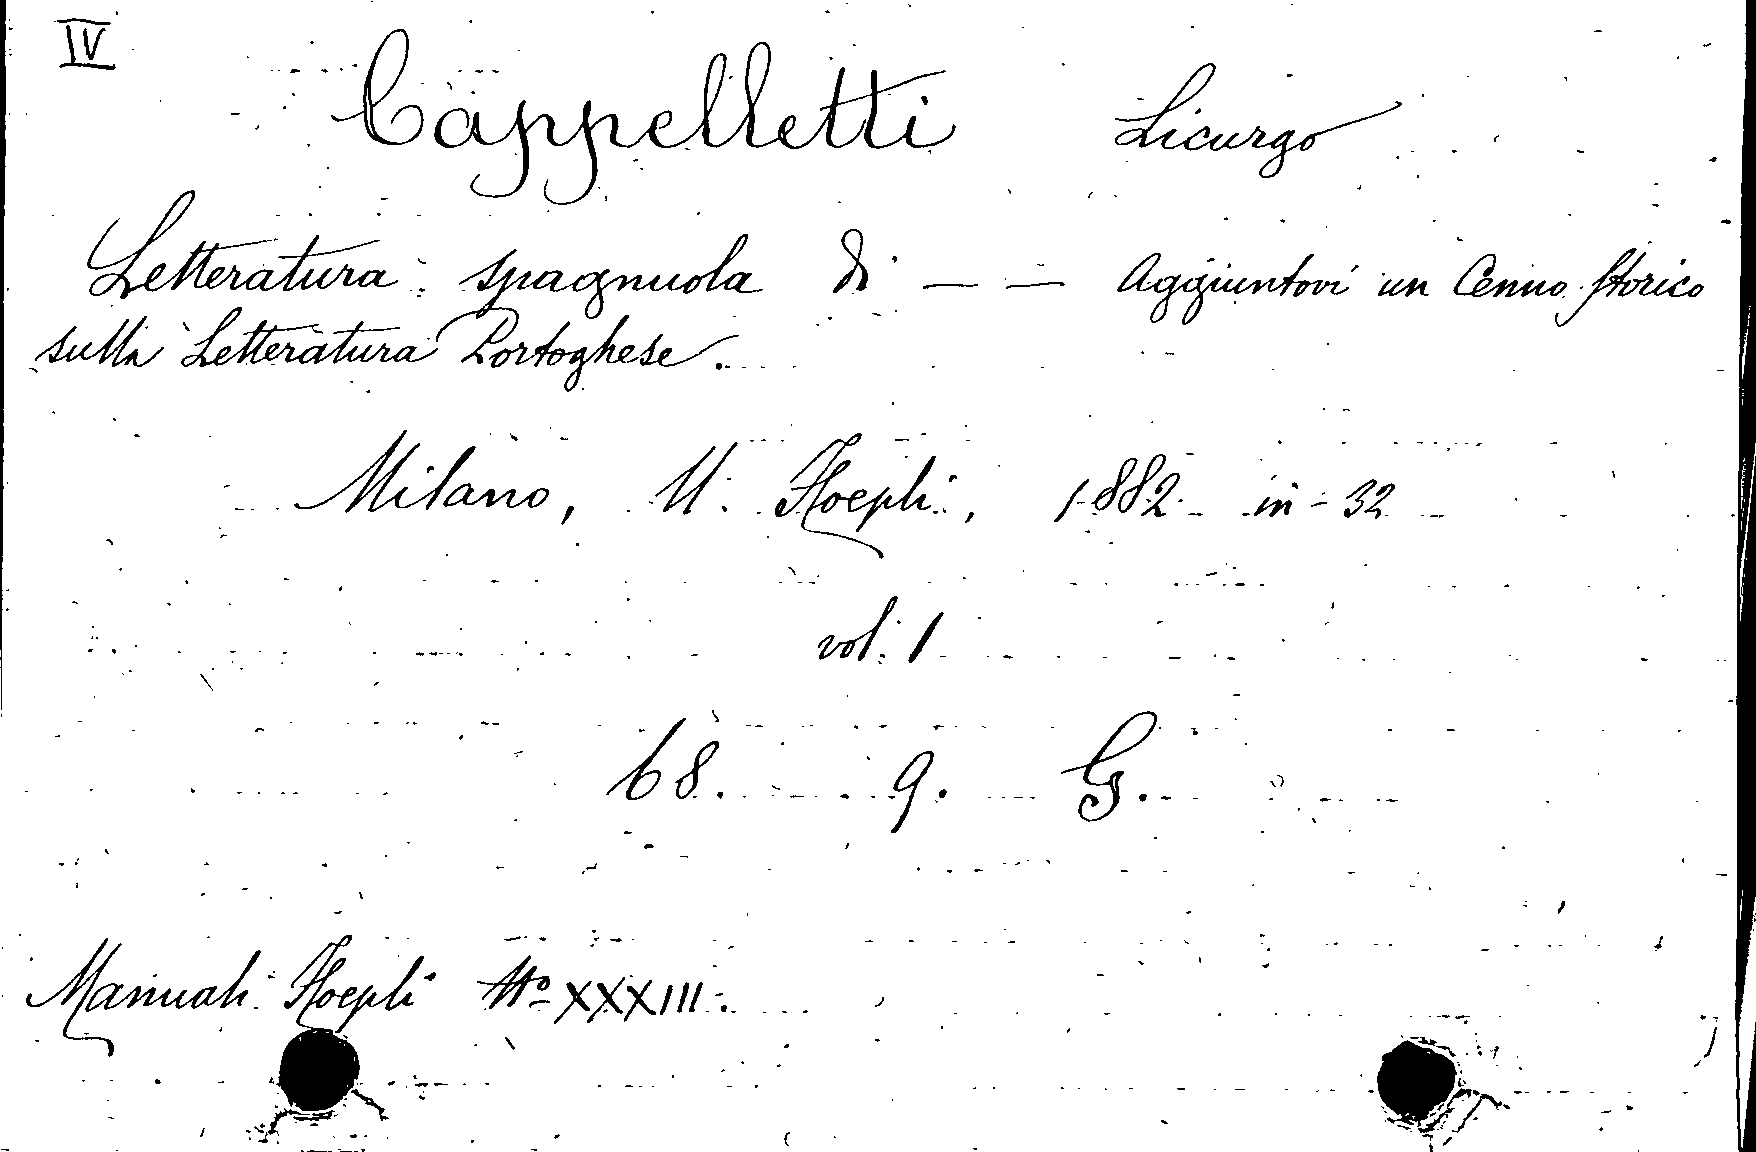 IV
Cappelletti Licurgo
Letteratura spagnuola di — — Aggiuntovi un Cenno Storico
sulla Letteratura Portoghese.
Milano, U. Hoepli, 1882 in-32
vol. 1
68. 9. G.
Manuali Hoepli No XXXIII.